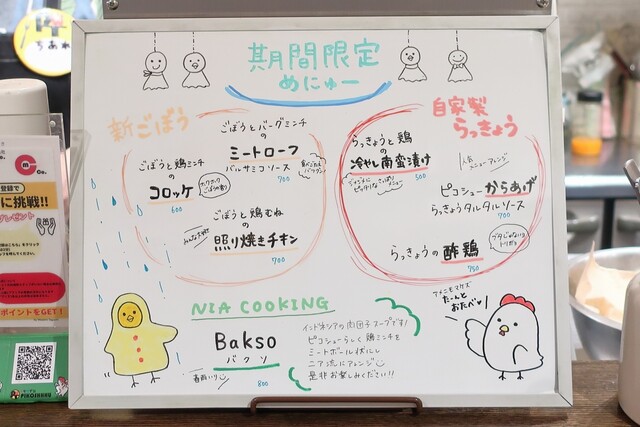 期間限定
めにゅー
新ごぼう
ごぼうと鶏ミンチ
の
コロッケ
600
ホクホク
ごぼうの香り
ごぼうとバーグミンチ
の
ミートローフ
バルサミコソース
700
ごぼうと鶏むね
の
照り焼きチキン
700
みんな大好き
自家製
らっきょう
らっきょうと鶏
の
冷やし南蛮漬け
500
人気
メニューアレンジ
ピコシューからあげ
らっきょうタルタルソース
700
らっきょうの酢鶏
750
ブタじゃないよ
トリだよ
NIA COOKING
Bakso
バクソ
春雨いり
800
インドネシアの肉団子スープです!
ピコシューらしく鶏ミンチを
ミートボール状にし
ニア流にアレンジ
是非お楽しみください!!
アメニモマケズ
たーんと
おたべッ!
ちあれ
Co.
登録で
に挑戦!!
プレゼント
ポイントをGET!
PIKOSHURU